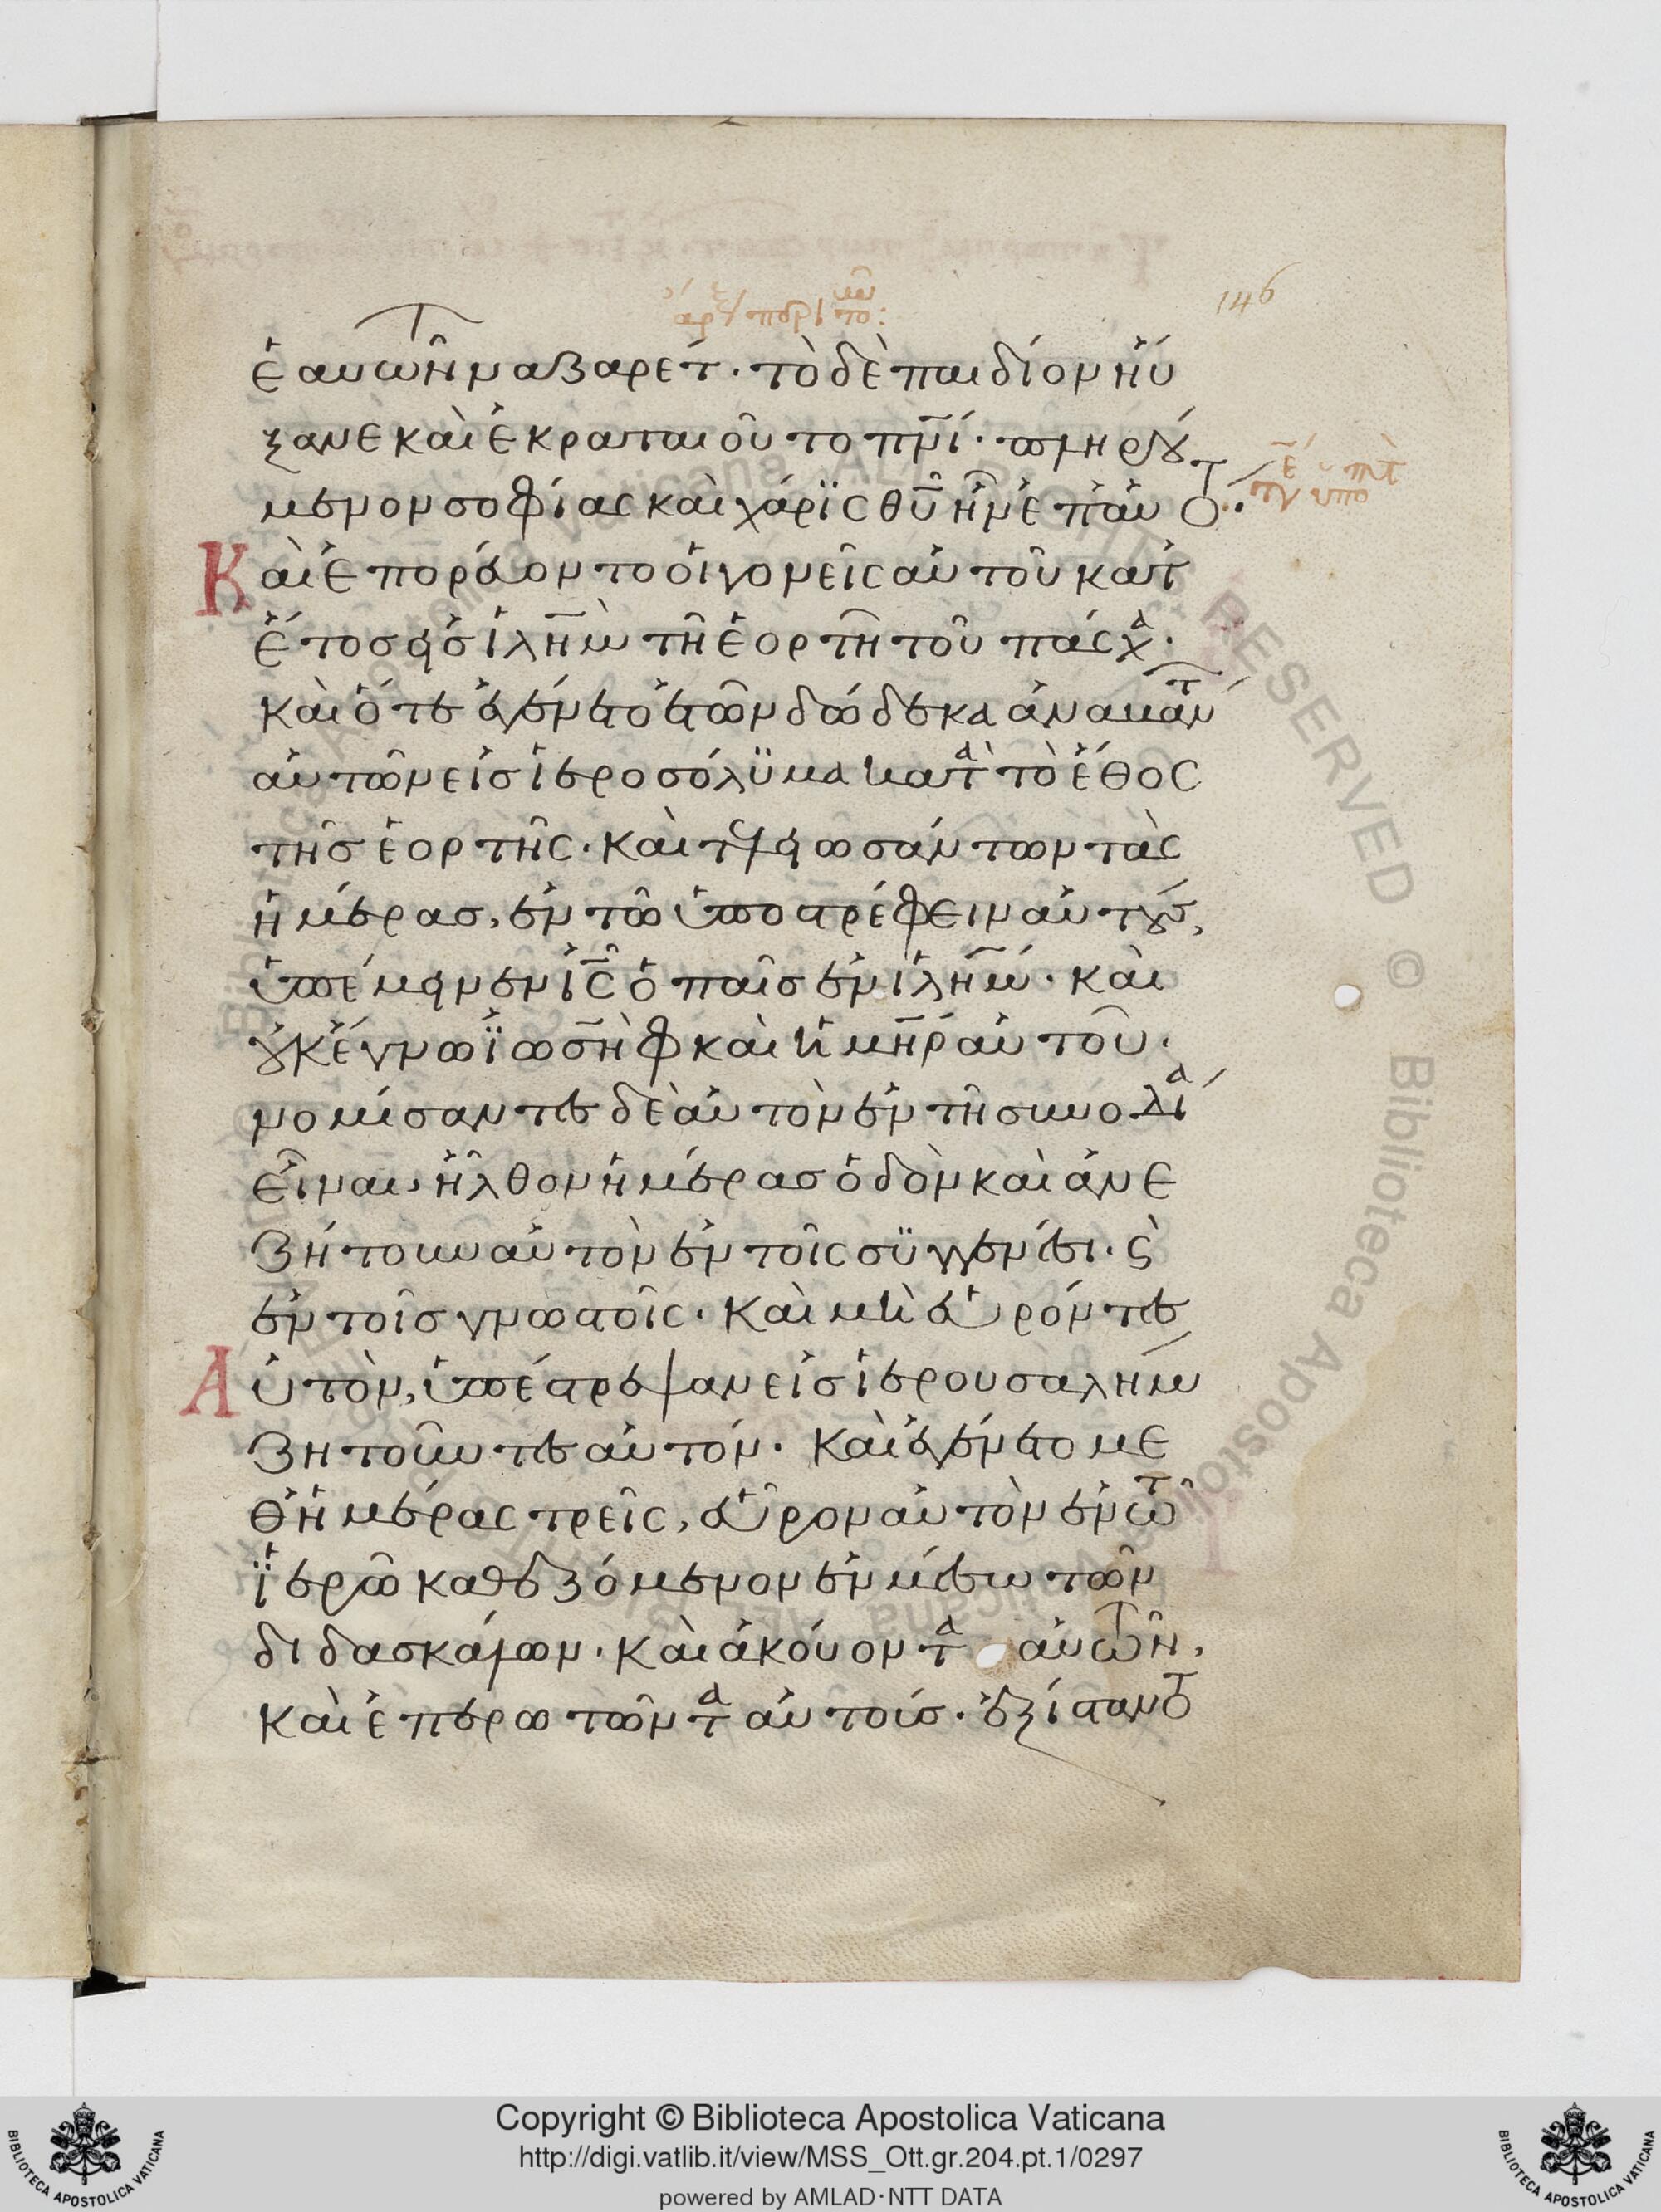 146
ἑαυτῶν ναζαρέτ· τὸ δὲ παιδίον ηὔ
ξανε καὶ ἐκραταιοῦτο πν̅ι· πληρού
μενον σοφίας καὶ χάρϊς θυ̅ ἦν ἐπ' αὐτό·
Καὶ ἐπορεύοντο οἱ γονεῖς αὐτοῦ κατ'
ἔτος εἰς ἰλη̅μ τῆ ἑορτῆ τοῦ πάσχα·
καὶ ὅτε ἐγένετο ἐτῶν δώδεκα ἀναβάντων
αὐτῶν εἰς ἱεροσόλϋμα κατὰ τὸ ἔθος
τῆς ἑορτῆς· καὶ τελειωσάντων τὰς
ἡμέρας, ἐν τῶ ὑποστρέφειν αὐτούς,
ὑπέμεινεν ι̅ς̅ ὁ παῖς ἐν ἰλη̅μ· καὶ
οὐκ ἔγνω ϊωσὴφ καὶ ἡ μη̅ρ αὐτοῦ·
νομίσαντες δὲ αὐτὸν ἐν τῆ συνοδία
εἶναι, ἦλθον ἡμέρας ὁδὸν καὶ ἀνε
ζήτουν αὐτὸν ἐν τοῖς σϋγγενέσι· ϗ
ἐν τοῖς γνωστοῖς· καὶ μὴ εὑρόντες
Αὐτὸν, ὑπέστρεψαν εἰς ἱερουσαλήμ
ζητοῦντες αὐτόν· καὶ ἐγένετο με
θ' ἡμέρας τρεῖς, εὗρον αὐτὸν ἐν τῶ
ϊερῶ καθεζόμενον ἐν μέσω τῶν
διδασκάλων· καὶ ἀκούοντα αὐτῶν,
καὶ ἐπερωτῶντα αὐτούς· ἐξίσταντο
Copyright © Biblioteca Apostolica Vaticana
http://digi.vatlib.it/view/MSS_Ott.gr.204.pt.1/0297
powered by AMLAD·NTT DATA
BIBLIOTECA APOSTOLICA VATICANA
BIBLIOTECA APOSTOLICA VATICANA